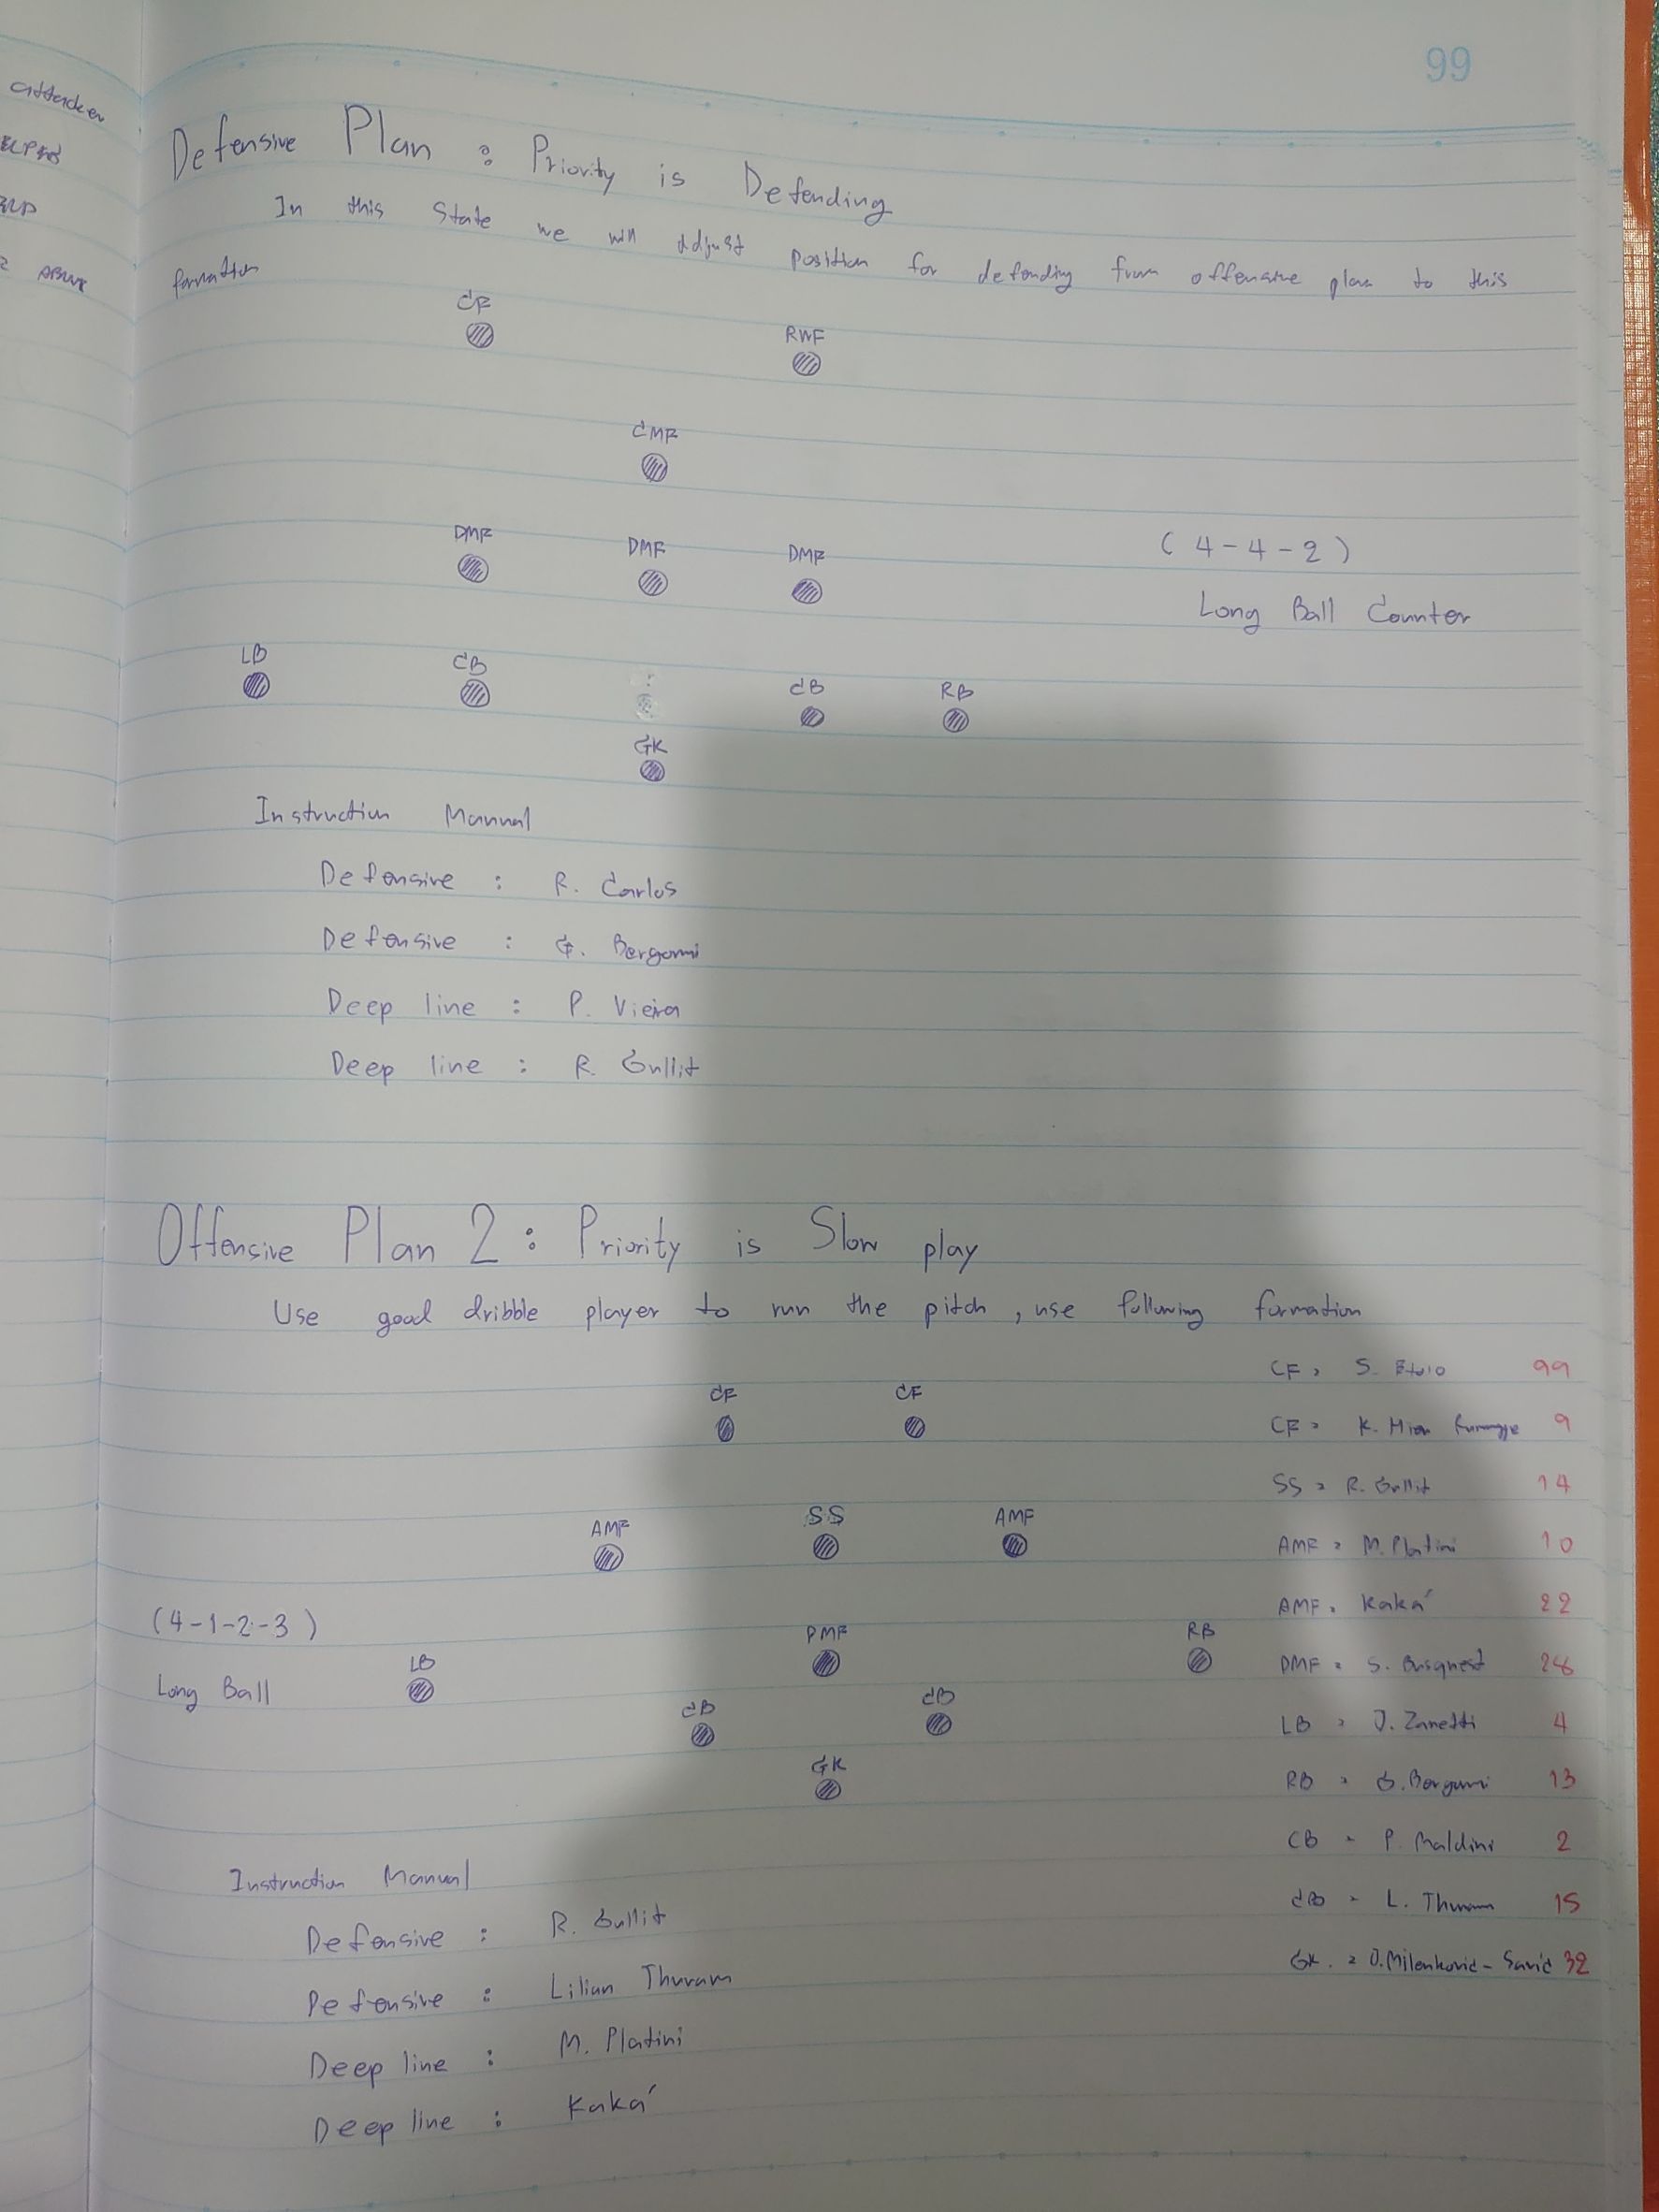 99
attacker
Defensive Plan : Priority is Defending
In this state we will adjust position for defending from offensive plan to this
formation
CF
RWF
CMF
DMF DMF DMF
(4-4-2)
Long Ball Counter
LB CB CB RB
GK
Instruction Manual
Defensive : R. Carlos
Defensive : G. Bergomi
Deep line : P. Vieira
Deep line : R. Gullit
Offensive Plan 2 : Priority is Slow play
Use good dribble player to run the pitch, use following formation
CF CF
AMF SS AMF
(4-1-2-3)
Long Ball
LB DMF RB
CB CB
GK
CF = S. Eto'o 99
CF = K. 9
SS = R. Gullit 14
AMF = M. Platini 10
AMF = Kaká 22
DMF = S. Busquest 26
LB = J. Zanetti 4
RB = G. Bergomi 13
CB = P. Maldini 2
CB = L. Thuram 15
GK. = V. Milenkovic-Savic 32
Instruction Manual
Defensive : R. Gullit
Defensive : Lilian Thuram
Deep line : M. Platini
Deep line : Kaká